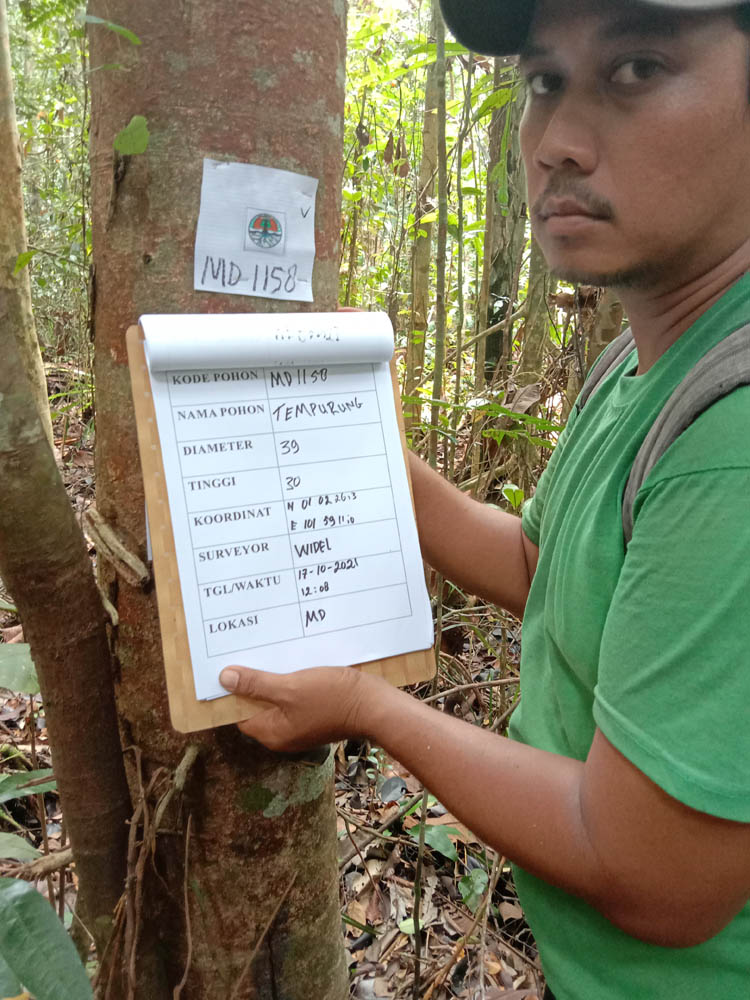 MD-1158-
KODE POHON MD1158
NAMA POHON TEMPURUNG
DIAMETER 39
TINGGI 30
KOORDINAT N 01 02 26.3
E 101 59 11.0
SURVEYOR WIDEL
TGL/WAKTU 17-10-2021
12:08
LOKASI MD